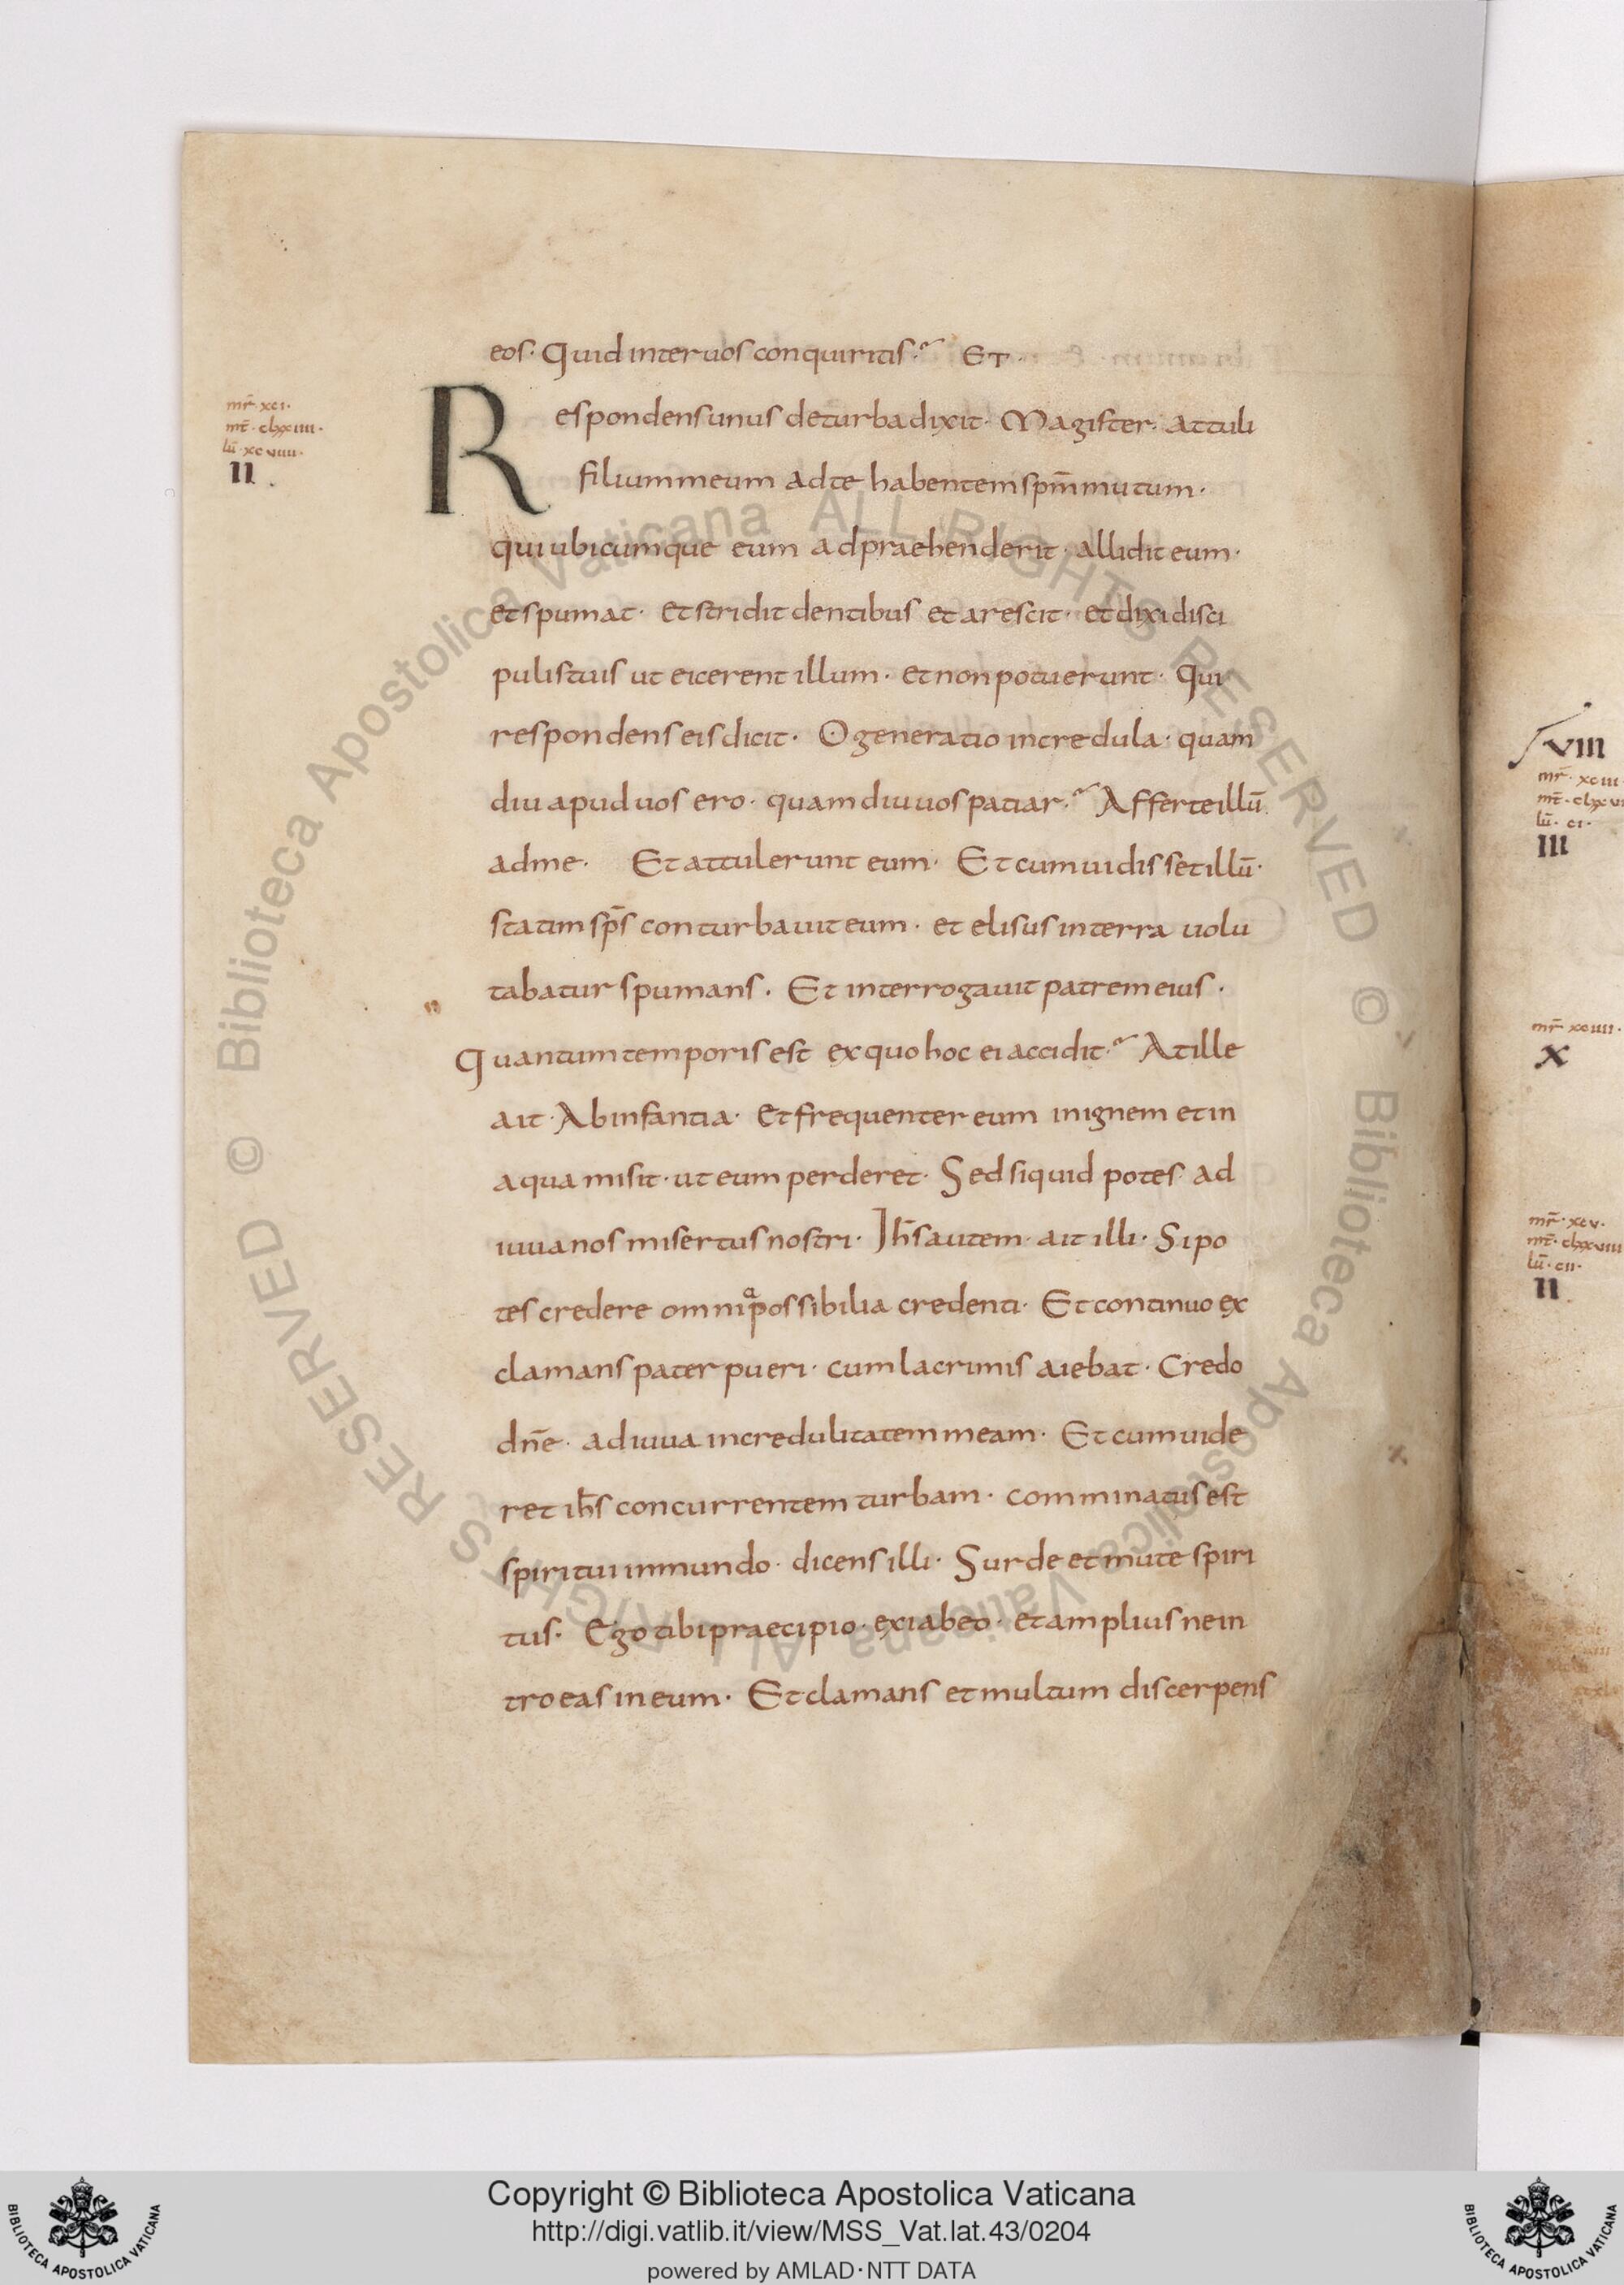 eos· Quid inter uos conquiritis? ET·
mr̄· xci·
mt̄· clxxiiii·
lū· xcviiii·
II·
Respondens unus de turba dixit· Magister· attuli
filium meum ad te habentem sp̄m mutum·
qui ubicumque eum adpraehenderit· allidit eum·
et spumat· et stridit dentibus et arescit· et dixi disci
pulis tuis ut eicerent illum· et non potuerunt· Qui
respondens eis dicit· O generatio incredula· quam
diu apud uos ero· quam diu uos patiar? Afferte illū
ad me· Et attulerunt eum· Et cum uidisset illū·
statim sp̄s conturbauit eum· et elisus in terra uolu
tabatur spumans· Et interrogauit patrem eius·
Quantum temporis est ex quo hoc ei accidit? At ille
ait· Ab infantia· Et frequenter eum in ignem et in
aqua misit· ut eum perderet· Sed si quid potes· ad
iuua nos misertus nostri· Ih̄s autem· ait illi· Si po
tes credere omniꝗ possibilia credenti· Et continuo ex
clamans pater pueri· cum lacrimis aiebat· Credo
dn̄e· adiuua incredulitatem meam· Et cum uide
ret ih̄s concurrentem turbam· comminatus est
spiritui inmundo· dicens illi· Surde et mute spiri
tus· Ego tibi praecipio· exi ab eo· et amplius ne in
troeas in eum· Et clamans et multum discerpens
VIII
mr̄· xciii
lū· ci·
III
mr̄ xciiii·
X
mr̄· xcv·
mt̄· clxxviii
lū· cii·
II
© Biblioteca Apostolica Vaticana ALL RIGHTS RESERVED © Biblioteca Apostolica Vaticana ALL RIGHTS RESERVED
Copyright © Biblioteca Apostolica Vaticana
http://digi.vatlib.it/view/MSS_Vat.lat.43/0204
powered by AMLAD·NTT DATA
BIBLIOTECA APOSTOLICA VATICANA
BIBLIOTECA APOSTOLICA VATICANA